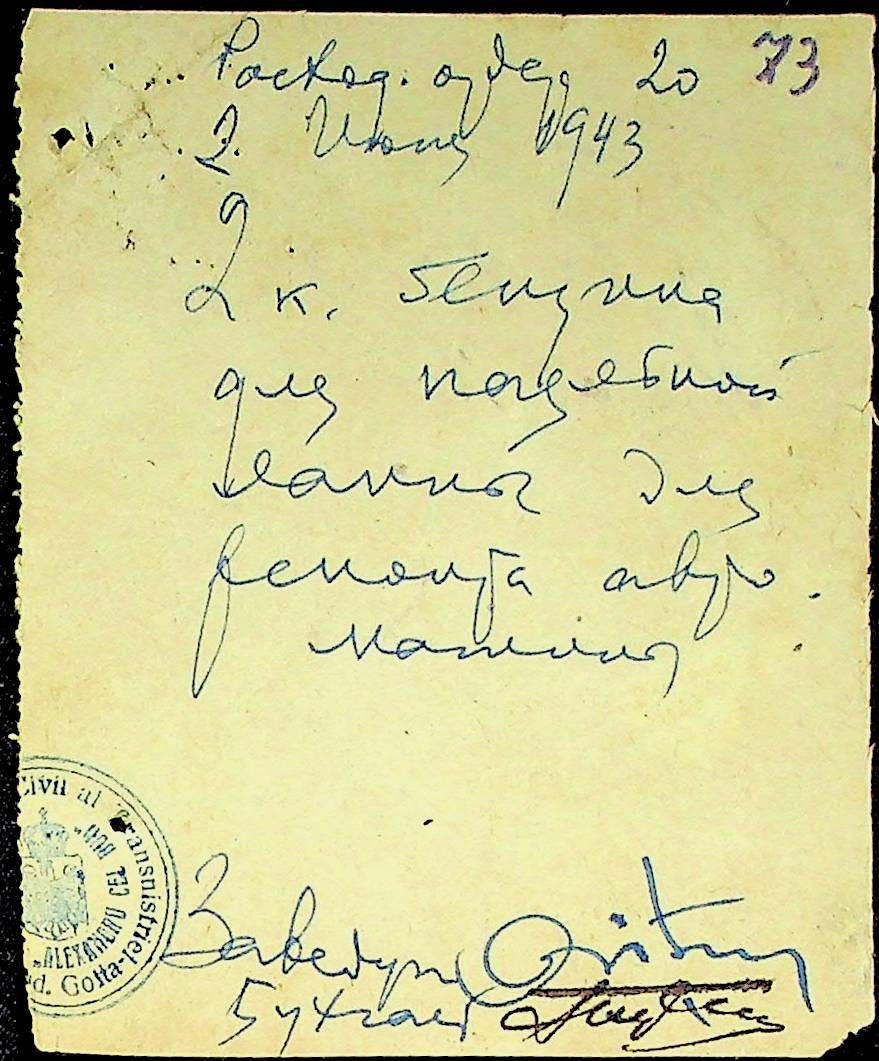 73
Расход. ордер 20
2. Июня 1943
2 к. бензина
для паяльной
лампы для
ремонта авто
машины
Civil al Transnistriei
"ALEXANDRU CEL BUN"
d. Golta-
Заведующ
Бухгалт